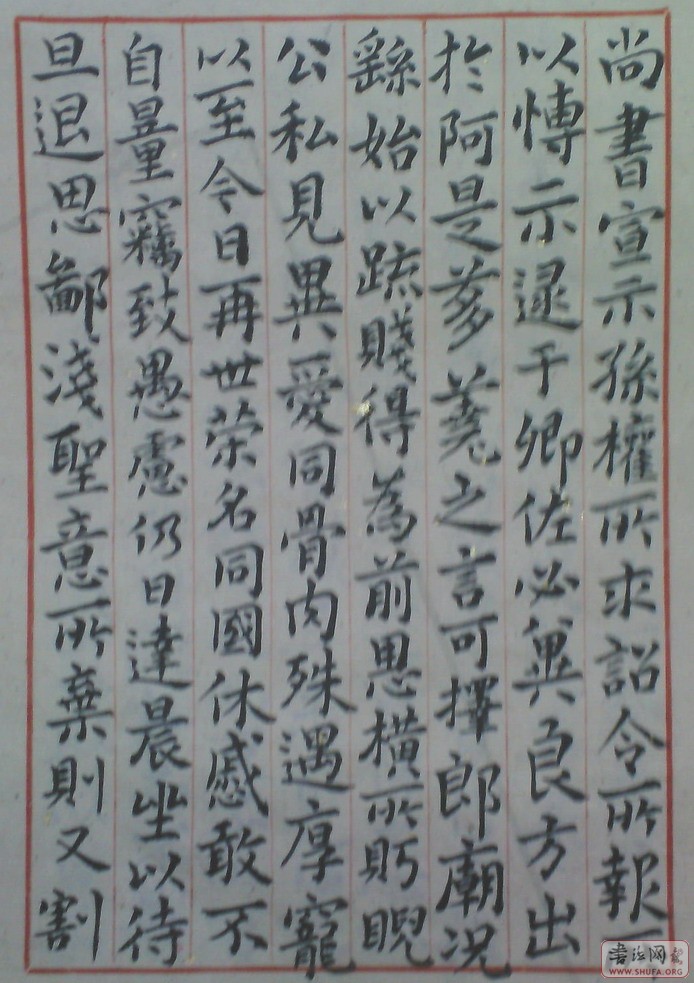 尚書宣示孫權所求詔令所報
以慱示逯于卿佐必冀良方出
於阿是芻蕘之言可擇郎廟況
繇始以疏賤得為前恩橫所眄睨
公私見異愛同骨肉殊遇厚寵
以至今日再世榮名同國休慼敢不
自量竊致愚慮仍日達晨坐以待
旦退思鄙淺聖意所棄則又割
書法网
WWW.SHUFA.ORG